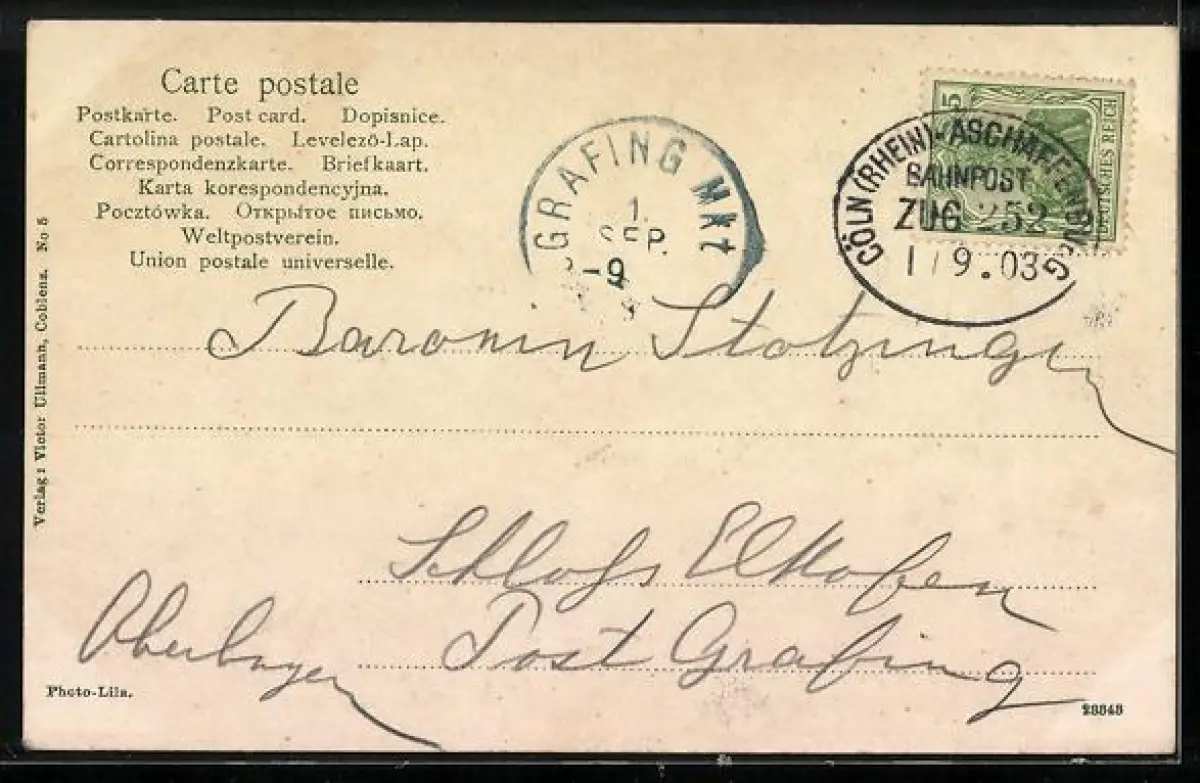 Carte postale
Postkarte. Post card. Dopisnice.
Cartolina postale. Levelező-Lap.
Correspondenzkarte. Briefkaart.
Karta korespondencyjna.
Pocztówka. Открытое письмо.
Weltpostverein.
Union postale universelle.
GRAFING Mkt
1.
SEP.
-9
5
DEUTSCHES REICH
CÖLN (RHEIN)-ASCHAFFENBURG
BAHNPOST
ZUG 252
1/9.03
Baronin Stotzingen
Schloss Elkofen
Post Grafing
Oberbayern
Verlag: Victor Ullmann, Coblenz. No 5
Photo-Lila.
28848